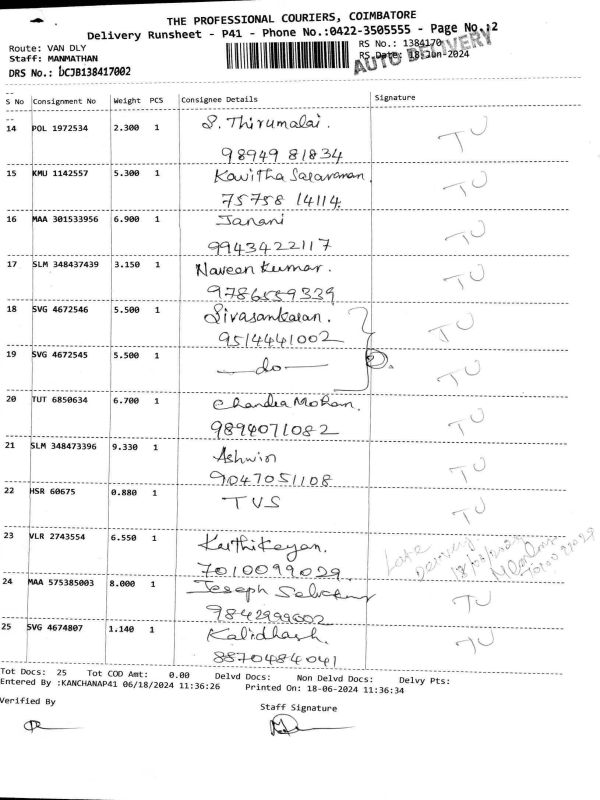 THE PROFESSIONAL COURIERS, COIMBATORE
Delivery Runsheet - P41 - Phone No.:0422-3505555 - Page No.:2
Route: VAN DLY
RS No.: 1384170
Staff: MANMATHAN
RS Date: 18-Jun-2024
AUTO DELIVERY
DRS No.: UCJB138417002
S No Consignment No Weight PCS Consignee Details Signature
14 POL 1972534 2.300 1 S. Thirumalai. TU
98949 81834
15 KMU 1142557 5.300 1 Kavitha Saravanan. TU
75758 14114.
16 MAA 301533956 6.900 1 Janani TU
9943422117
17 SLM 348437439 3.150 1 Naveen Kumar. TU
9786559339
18 SVG 4672546 5.500 1 Sivasankaran. TU
9514441002
19 SVG 4672545 5.500 1 —do— 2. TU
20 TUT 6850634 6.700 1 Chandra Mohan. TU
9894071082
21 SLM 348473396 9.330 1 Ashwin TU
9047051108
22 HSR 60675 0.880 1 TVS TU
23 VLR 2743554 6.550 1 Karthikeyan. Late
Delivery.
7010099029. 7010099029
24 MAA 575385003 8.000 1 Joseph TU
9842999002
25 SVG 4674807 1.140 1 Kalidhash. TU
8870484041
Tot Docs: 25 Tot COD Amt: 0.00 Delvd Docs: Non Delvd Docs: Delvy Pts:
Entered By :KANCHANAP41 06/18/2024 11:36:26 Printed On: 18-06-2024 11:36:34
Verified By Staff Signature